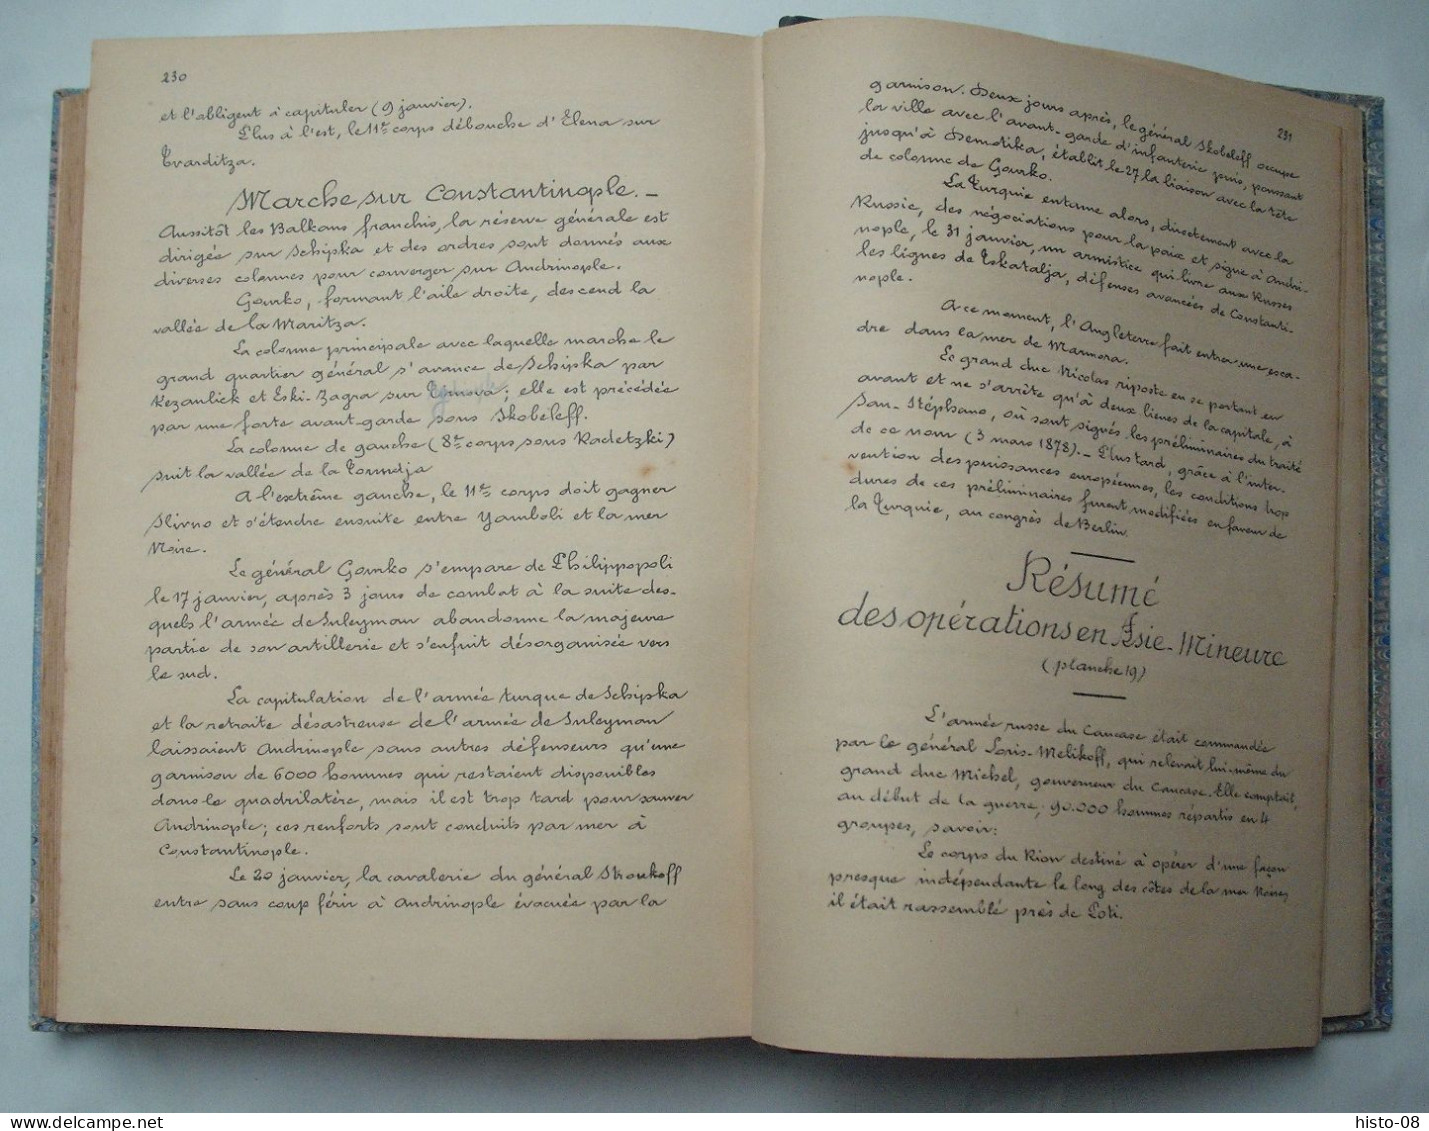 230
et l'obligent à capituler (9 janvier).
Plus à l'est, le 11e corps débouche d'Elena sur
Tvarditza.
Marche sur Constantinople. _
Aussitôt les Balkans franchis, la réserve générale est
dirigée sur Schipka et des ordres sont donnés aux
diverses colonnes pour converger sur Andrinople.
Gourko, formant l'aile droite, descend la
vallée de la Maritza.
La colonne principale avec laquelle marche le
grand quartier général s'avance de Schipka par
Kezanlick et Eski-Zagra sur Tirnova; elle est précédée
par une forte avant-garde sous Skobeleff.
La colonne de gauche (8e corps sous Radetzki)
suit la vallée de la Toundja
A l'extrême gauche, le 11e corps doit gagner
Slivno et s'étendre ensuite entre Yamboli et la mer
Noire.
Le général Gourko s'empare de Philippopoli
le 17 janvier, après 3 jours de combat à la suite des-
quels l'armée de Suleyman abandonne la majeure
partie de son artillerie et s'enfuit désorganisée vers
le sud.
La capitulation de l'armée turque de Schipka
et la retraite désastreuse de l'armée de Suleyman
laissaient Andrinople sans autres défenseurs qu'une
garnison de 6000 hommes qui restaient disponibles
dans le quadrilatère, mais il est trop tard pour sauver
Andrinople; ces renforts sont conduits par mer à
Constantinople.
Le 20 janvier, la cavalerie du général Stroukoff
entre sans coup férir à Andrinople évacuée par la
231
garnison. Deux jours après, le général Skobeleff occupe
la ville avec l'avant-garde d'infanterie puis, poussant
jusqu'à Demotika, établit le 27 la liaison avec la tête
de colonne de Gourko.
La Turquie entame alors, directement avec la
Russie, des négociations pour la paix et signe à Andri-
nople, le 31 janvier, un armistice qui livre aux Russes
les lignes de Tskatalja, défenses avancées de Constanti-
nople.
A ce moment, l'Angleterre fait entrer une esca-
dre dans la mer de Marmora.
Le grand duc Nicolas riposte en se portant en
avant et ne s'arrête qu'à deux lieues de la capitale, à
San-Stéphano, où sont signés les préliminaires du traité
de ce nom (3 mars 1878)._ Plus tard, grâce à l'inter-
vention des puissances européennes, les conditions trop
dures de ces préliminaires furent modifiées en faveur de
la Turquie, au congrès de Berlin.
Résumé
des opérations en Asie-Mineure
(planche 19)
L'armée russe du Caucase était commandée
par le général Loris-Melikoff, qui relevait lui-même du
grand duc Michel, gouverneur du Caucase. Elle comptait,
au début de la guerre, 90.000 hommes répartis en 4
groupes, savoir:
Le corps du Rion destiné à opérer d'une façon
presque indépendante le long des côtes de la mer Noire;
il était rassemblé près de Poti.
histo-08